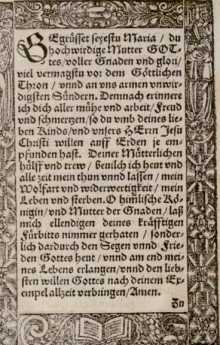 GEgrüsset seyestu Maria / du
hochwirdige Mutter GOT-
tes / voller Gnaden vnd glori /
viel vermagstu vor dem Göttlichen
Thron / vnnd an vns armen vnwir-
digsten Sündern. Demnach erinnere
ich dich aller mühe vnd arbeit / Freud
vnd schmertzen / so du vmb deines lie-
ben Kinds / vnd vnsers HErrn Jesu
Christi willen auff Erden je em-
pfunden hast. Deiner Mütterlichen
hülff vnd trew / beuilch ich heut vnd
alle zeit mein thun vnnd lassen / mein
Wolfart vnd widerwertigkeit / mein
Leben vnd sterben. O himlische Kö-
nigin / vnd Mutter der Gnaden / laß
mich ellendigen deines kräfftigen
Fürbitts nimmer gerhaten / sonder-
lich dardurch den Segen vnnd Frie-
den Gottes heut / vnnd am end mei-
nes Lebens erlangen / vnnd den lieb-
sten willen Gottes nach deinem Ex-
empel allzeit verbringen / Amen.